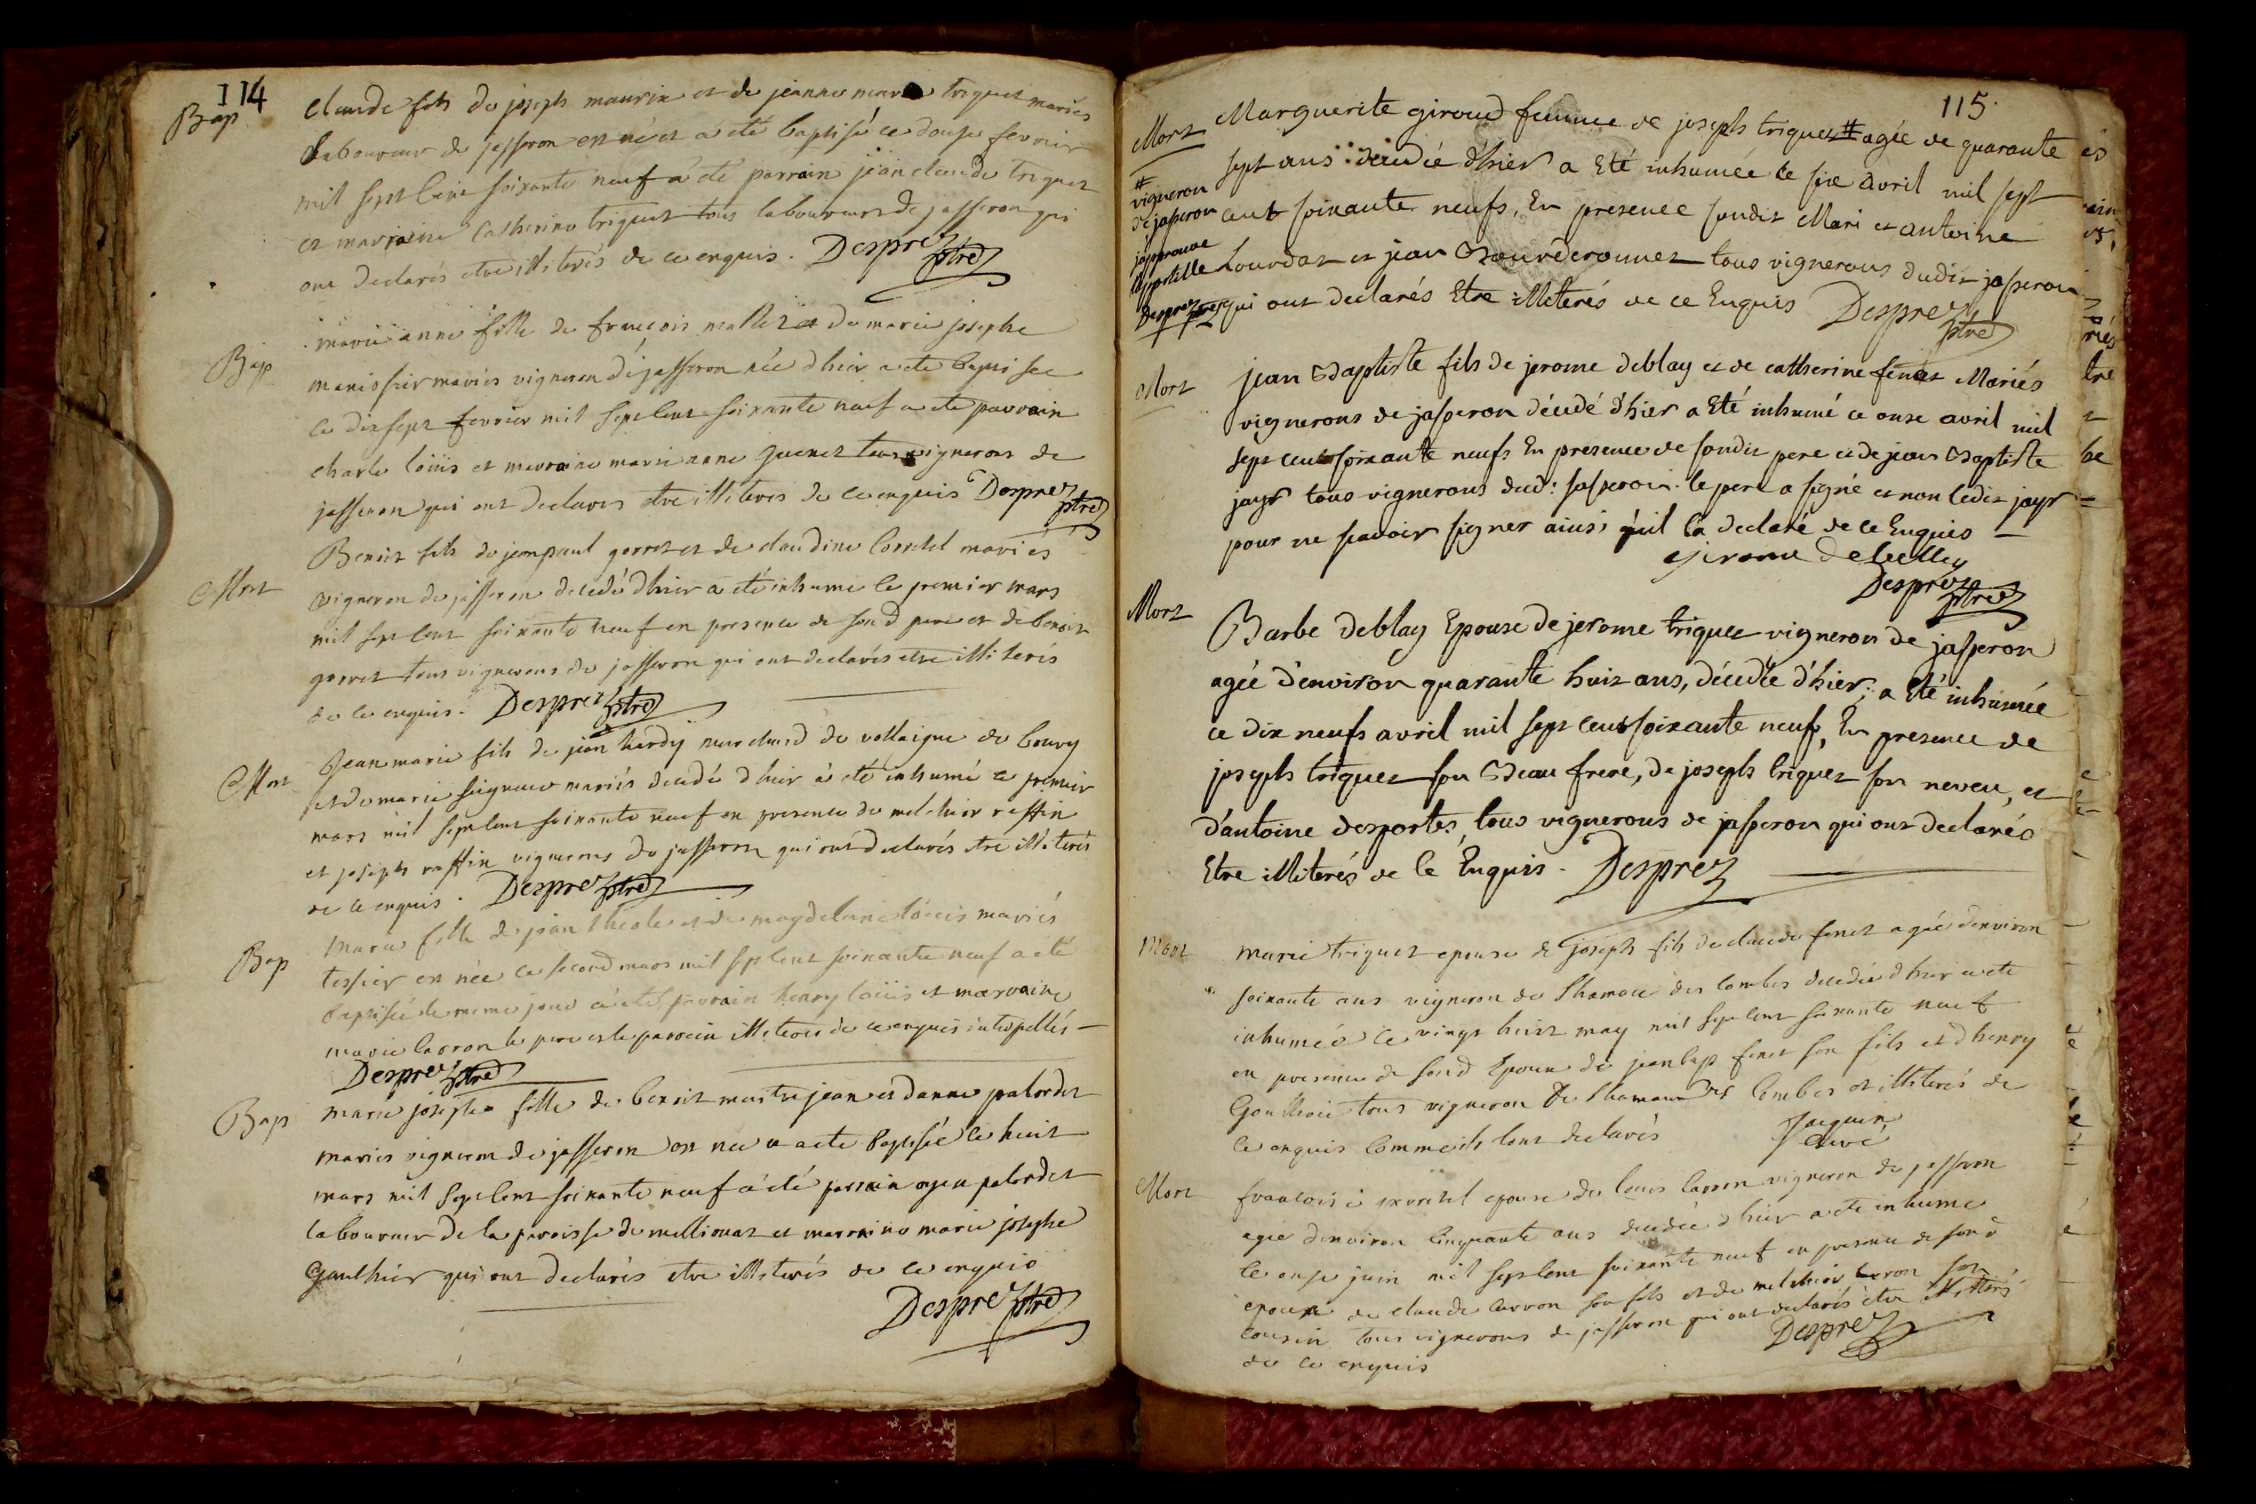 114
Bap
claude fils de joseph maurin et de jeanne marie triquet mariés
laboureur de jasseron est né et a été baptisé ce douse fevrier
mil sept cent soixante neuf a été parrain jean claude triquet
et marraine catherine triquet tous laboureurs de jasseron qui
ont declarés etre illiterés de ce enquis. Desprez ptre
Bap
marie anne fille de françois mallet et de marie josephe
mariés vigneron de jasseron née d'hier a ete baptisee
ce dix sept fevrier mil sept cent soixante neuf a ete parrain
charle loüis et marraine marie anne guenet tous vignerons de
jasseron qui ont declarés etre illiterés de ce enquis Desprez ptre
Mort
Benoit fils de jean paul gorret et de claudine mariés
vigneron de jasseron decedé d'hier a été inhumé le premier mars
mil sept cent soixante neuf en presence de sond pere et de benoit
gorret tous vignerons de jasseron qui ont declarés etre illiterés
de ce enquis. Desprez ptre
Mort
Jean marie fils de jean hardÿ marchand de vollaique de bourg
et de marie mariés decedé d'hier a été inhumé ce premier
mars mil sept cent soixante neuf en presence de melchior raffin
et joseph raffin vignerons de jasseron qui ont declarés etre illiterés
de ce enquis. Desprez ptre
Bap
Marie fille de jean et de magdelaine loüis mariés
tessier est née ce second mars mil sept cent soixante neuf a été
baptisée le meme jour a été parrain henry loüis et marraine
marie carron le pere et le parrain illiterés de ce enquis interpellés
Desprez ptre
Bap
marie josephe fille de benoit maitrejean et d'anne palordet
mariés vigneron de jasseron est née et a ete baptisée le huit
mars mil sept cent soixante neuf a été parrain palordet
laboureur de la paroisse de mellionat et marraine marie josephe
Gaulthier qui ont declarés etre illiterés de ce enquis
Desprez ptre
115.
Mort
Marguerite giroud femme de joseph triquet # agée de quarante
sept ans decedée d'hier a Eté inhumée le six avril mil sept
cent soixante neufs, En presence sondit Mari et antoine
Lourdat et jean Bourderonnet tous vignerons dudit jasseron
qui ont declarés Etre illiterés de ce Enquis Desprez ptre
# vigneron
de jasseron
j'approuve
l'appostille
Desprez ptre
Mort
jean Baptiste fils de jerome deblay et de catherine fenet Mariés
vignerons de jasseron décédé d'hier a Eté inhumé ce onse avril mil
sept cent soixante neufs En presence de sondit pere et de jean Baptiste
jayr tous vignerons dud: jasseron. le pere a signé et non ledit jayr
pour ne scavoir signer ainsi qu'il l'a declaré de ce Enquis
jerome
Desprez ptre
Mort
Barbe deblay Epouse de jerome triquet vigneron de jasseron
agée d'environ quarante huit ans, décédée d'hier, a Eté inhumée
ce dix neufs avril mil sept cent soixante neuf, En presence de
joseph triquet son Beau frere, de joseph triquet son neveu, et
d'antoine desportes, tous vignerons de jasseron qui ont declarés
Etre illiterés de ce Enquis. Desprez
Mort
marie triquet epouse de joseph fils de claude fenet agée denviron
soixante ans vigneron du hamau des combes decedée d'hier a ete
inhumée ce vingt huit may mil sept cent soixante neuf
en presence de sond Epoux de jean bap fenet son fils et d'henry
Goulliou tous vigneron du hamau des combes et illiterés de
ce enquis comme ils l'ont declarés
curé
Mort
françoise epouse de louis carron vigneron de jasseron
agée d'environ cinquante ans decedée d'hier a ete inhumé
le onse juin mil sept cent soixante neuf en presence de son d
epoux de claude carron son fils et de melchior carron son
cousin tous vignerons de jasseron qui ont declarés etre illiterés
de ce enquis Desprez